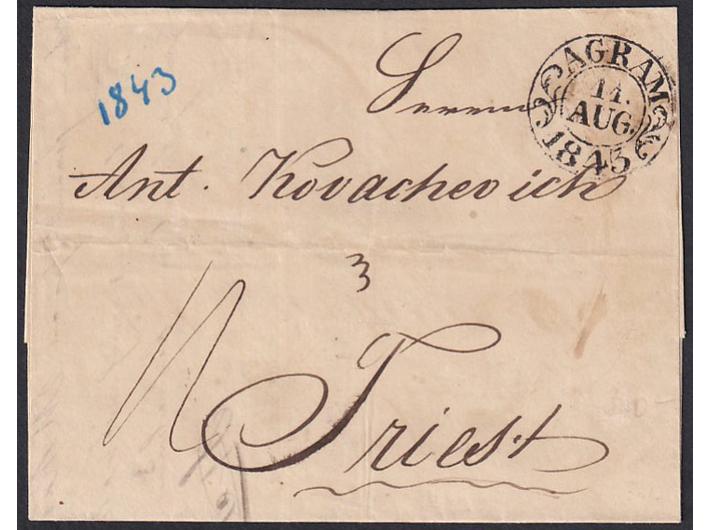 1843
AGRAM
11.
AUG.
1843
Herrn
Ant. Kovachevich
3
Triest